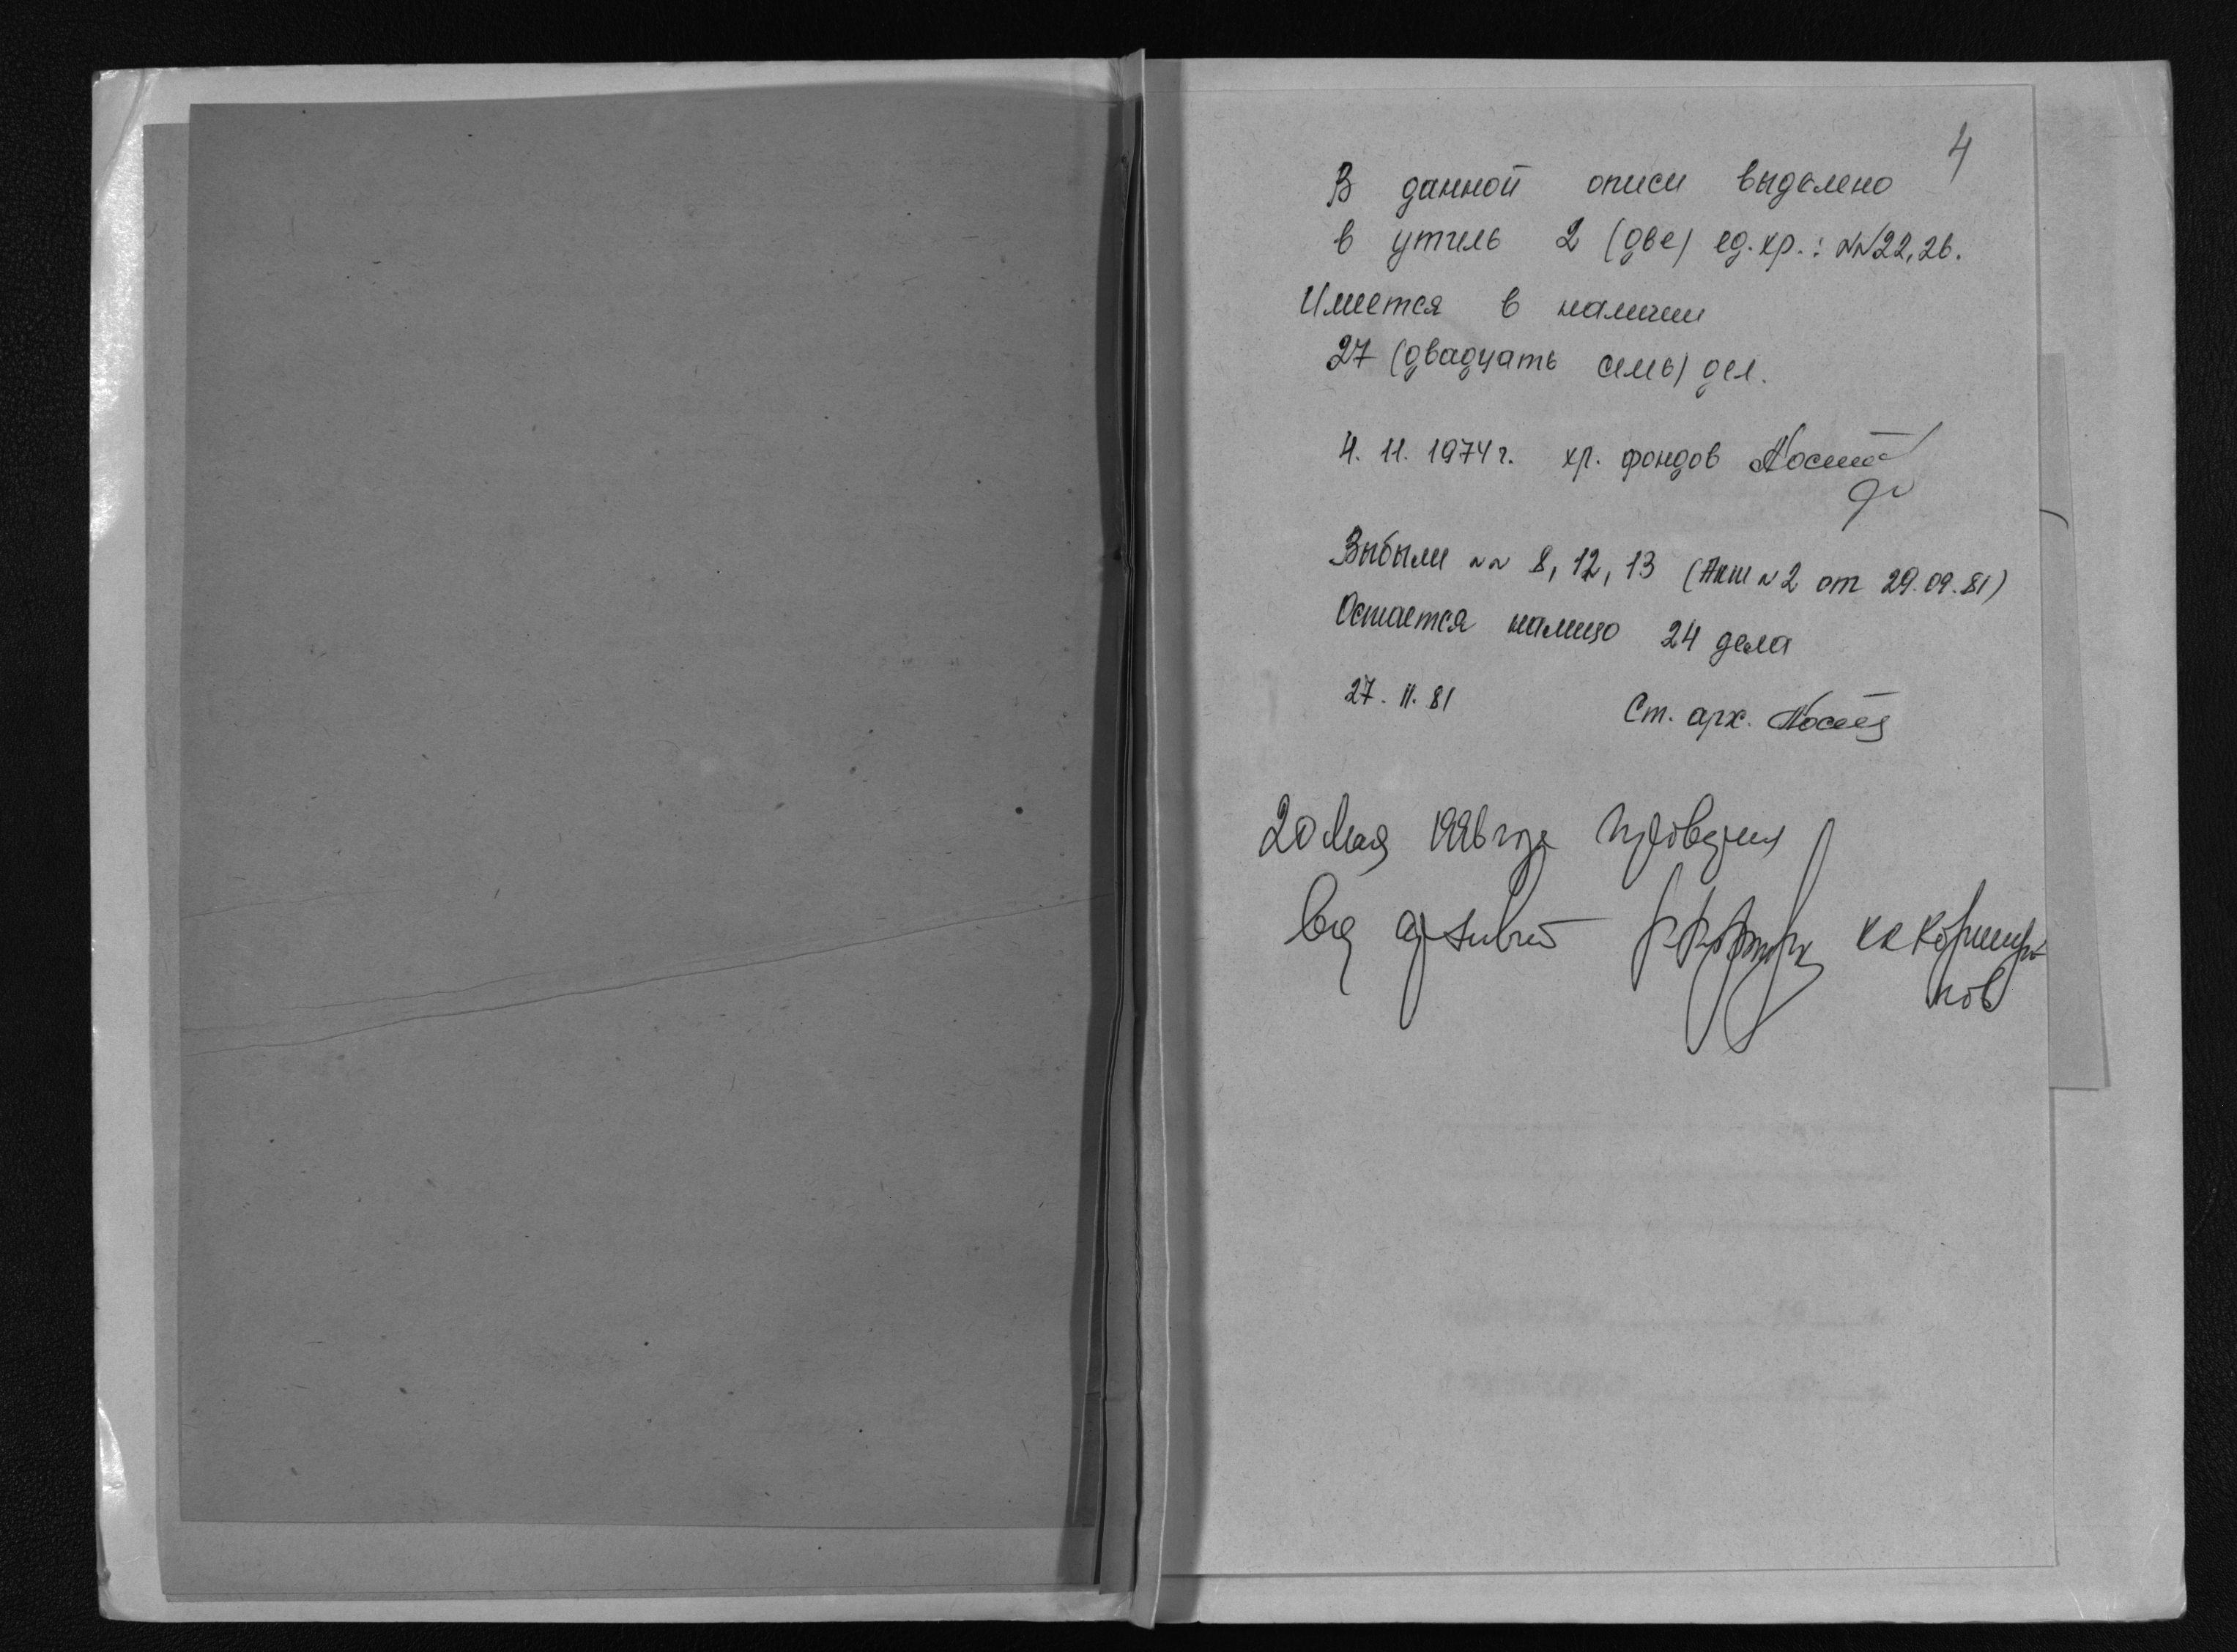 4
В данной описи выделено
в утиль 2 (две) ед. хр.: №№22, 26.
Имеется в наличии
27 (двадцать семь) дел.
4. 11. 1974 г. хр. фондов
Выбыли №№ 8, 12, 13 (Акт №2 от 29.09.81)
Остается налицо 24 дела
27. 11. 81 Ст. арх.
20 мая 1996 года проверил
вед архивист